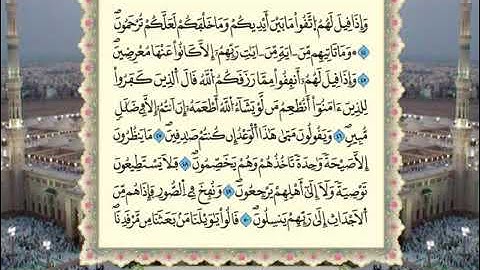 وَإِذَا قِيلَ لَهُمُ اتَّقُواْ مَا بَيْنَ أَيْدِيكُمْ وَمَا خَلْفَكُمْ لَعَلَّكُمْ تُرْحَمُونَ
٤٤ وَمَا تَاتِيهِم مِّنَ ايَةٍ مِّنَ ايَٰتِ رَبِّهِمُ إِلَّا كَانُواْ عَنْهَا مُعْرِضِينَ
٤٥ وَإِذَا قِيلَ لَهُمُ أَنفِقُواْ مِمَّا رَزَقَكُمُ اللَّهُ قَالَ الَّذِينَ كَفَرُواْ
لِلَّذِينَ ءَامَنُواْ أَنُطْعِمُ مَن لَّوْ يَشَاءُ اللَّهُ أَطْعَمَهُ إِنَ انتُمُ إِلَّا فِي ضَلَٰلٍ
مُّبِينٍ ٤٦ وَيَقُولُونَ مَتَىٰ هَٰذَا الْوَعْدُ إِن كُنتُمْ صَٰدِقِينَ ٤٧ مَا يَنظُرُونَ
إِلَّا صَيْحَةً وَٰحِدَةً تَاخُذُهُمْ وَهُمْ يَخَصِّمُونَ ٤٨ فَلَا يَسْتَطِيعُونَ
تَوْصِيَةً وَلَا إِلَىٰ أَهْلِهِمْ يَرْجِعُونَ ٤٩ وَنُفِخَ فِي الصُّورِ فَإِذَا هُم مِّنَ
الَاجْدَاثِ إِلَىٰ رَبِّهِمْ يَنسِلُونَ ٥٠ قَالُواْ يَٰوَيْلَنَا مَن بَعَثَنَا مِن مَّرْقَدِنَا